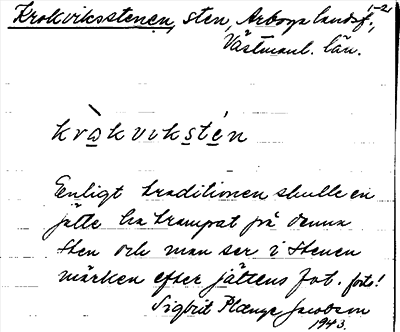 1-2
Krokviksstenen, sten, Arboga landsf.,
Västmanl. län.
kròkvikstén
Enligt traditionen skulle en
jätte ha trampat på denna
sten och man ser i stenen
märken efter jättens fot. foto!
Sigbrit Plænge Jacobson
1943.